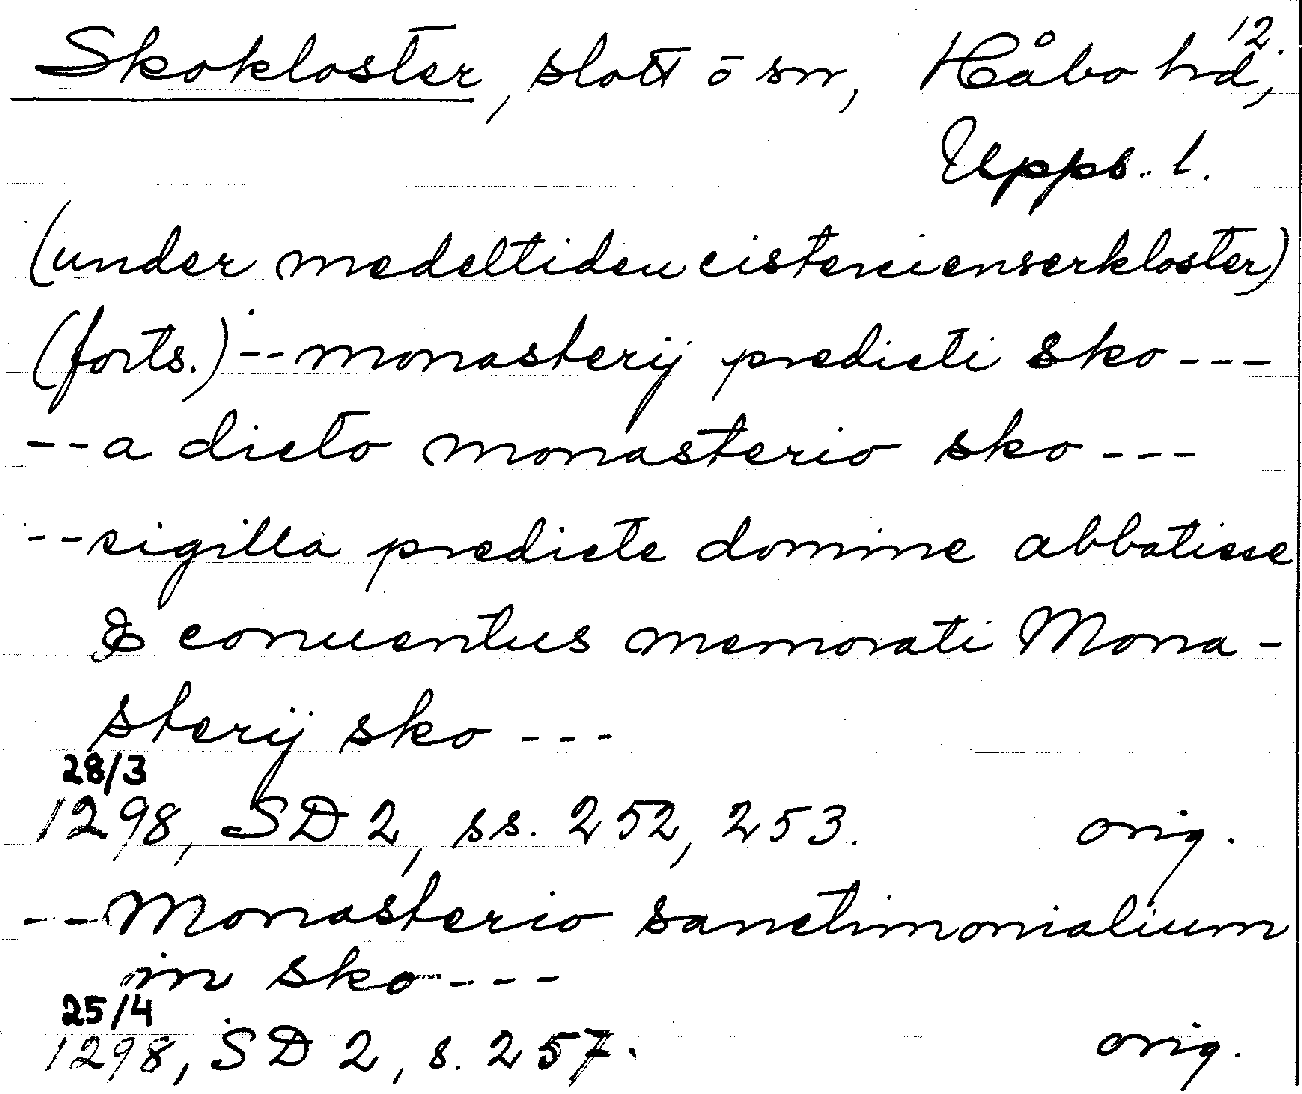 12.
Skokloster, slott o sn, Håbo hd,
Upps. l.
(under medeltiden cistercienserkloster)
(forts.) -- monasterij predicti sko ---
-- a dicto monasterio sko ---
-- sigilla predicte domine abbatisse
& conuentus memorati Mona-
sterij sko ---
28/3
1298, SD 2, ss. 252, 253. orig.
-- Monasterio sanctimonialium
in sko ---
25/4
1298, SD 2, s. 257. orig.